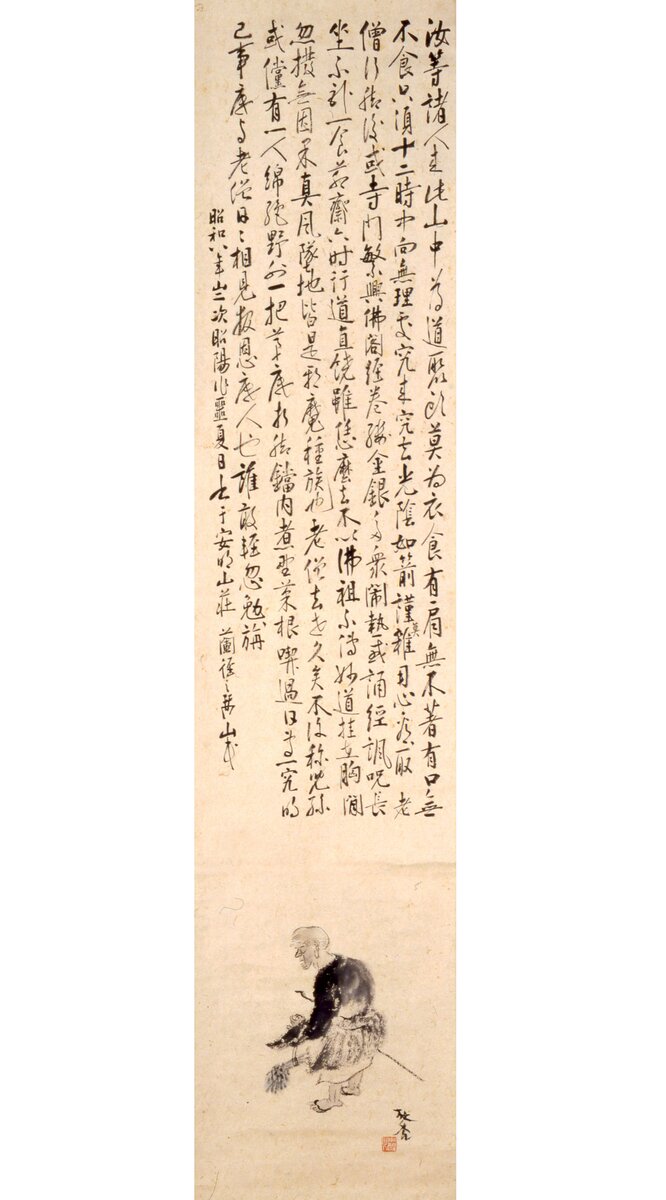 汝等諸人来此山中為道聚頭莫為衣食有肩無不著有口無
不食只須十二時中向無理会處究来究去光陰如箭謹莫雜用心看取 老
僧行脚後或寺門繁興佛閣経巻鏤金銀多衆鬧熱或誦經諷呪長
坐不臥一食卯齋六時行道直饒雖恁麼去不以佛祖不傳妙道挂在胸間
忽撥無因果真風墜地皆是邪魔種族也老僧去世久矣不許称児孫
或儻有一人綿絶野外一把茅底折脚鐺内煮野菜根喫過日専一究明
己事底与老僧日々相見報恩底人也誰敢輕忽勉旃
昭和八年歳次昭陽作噩夏日書于安明山荘